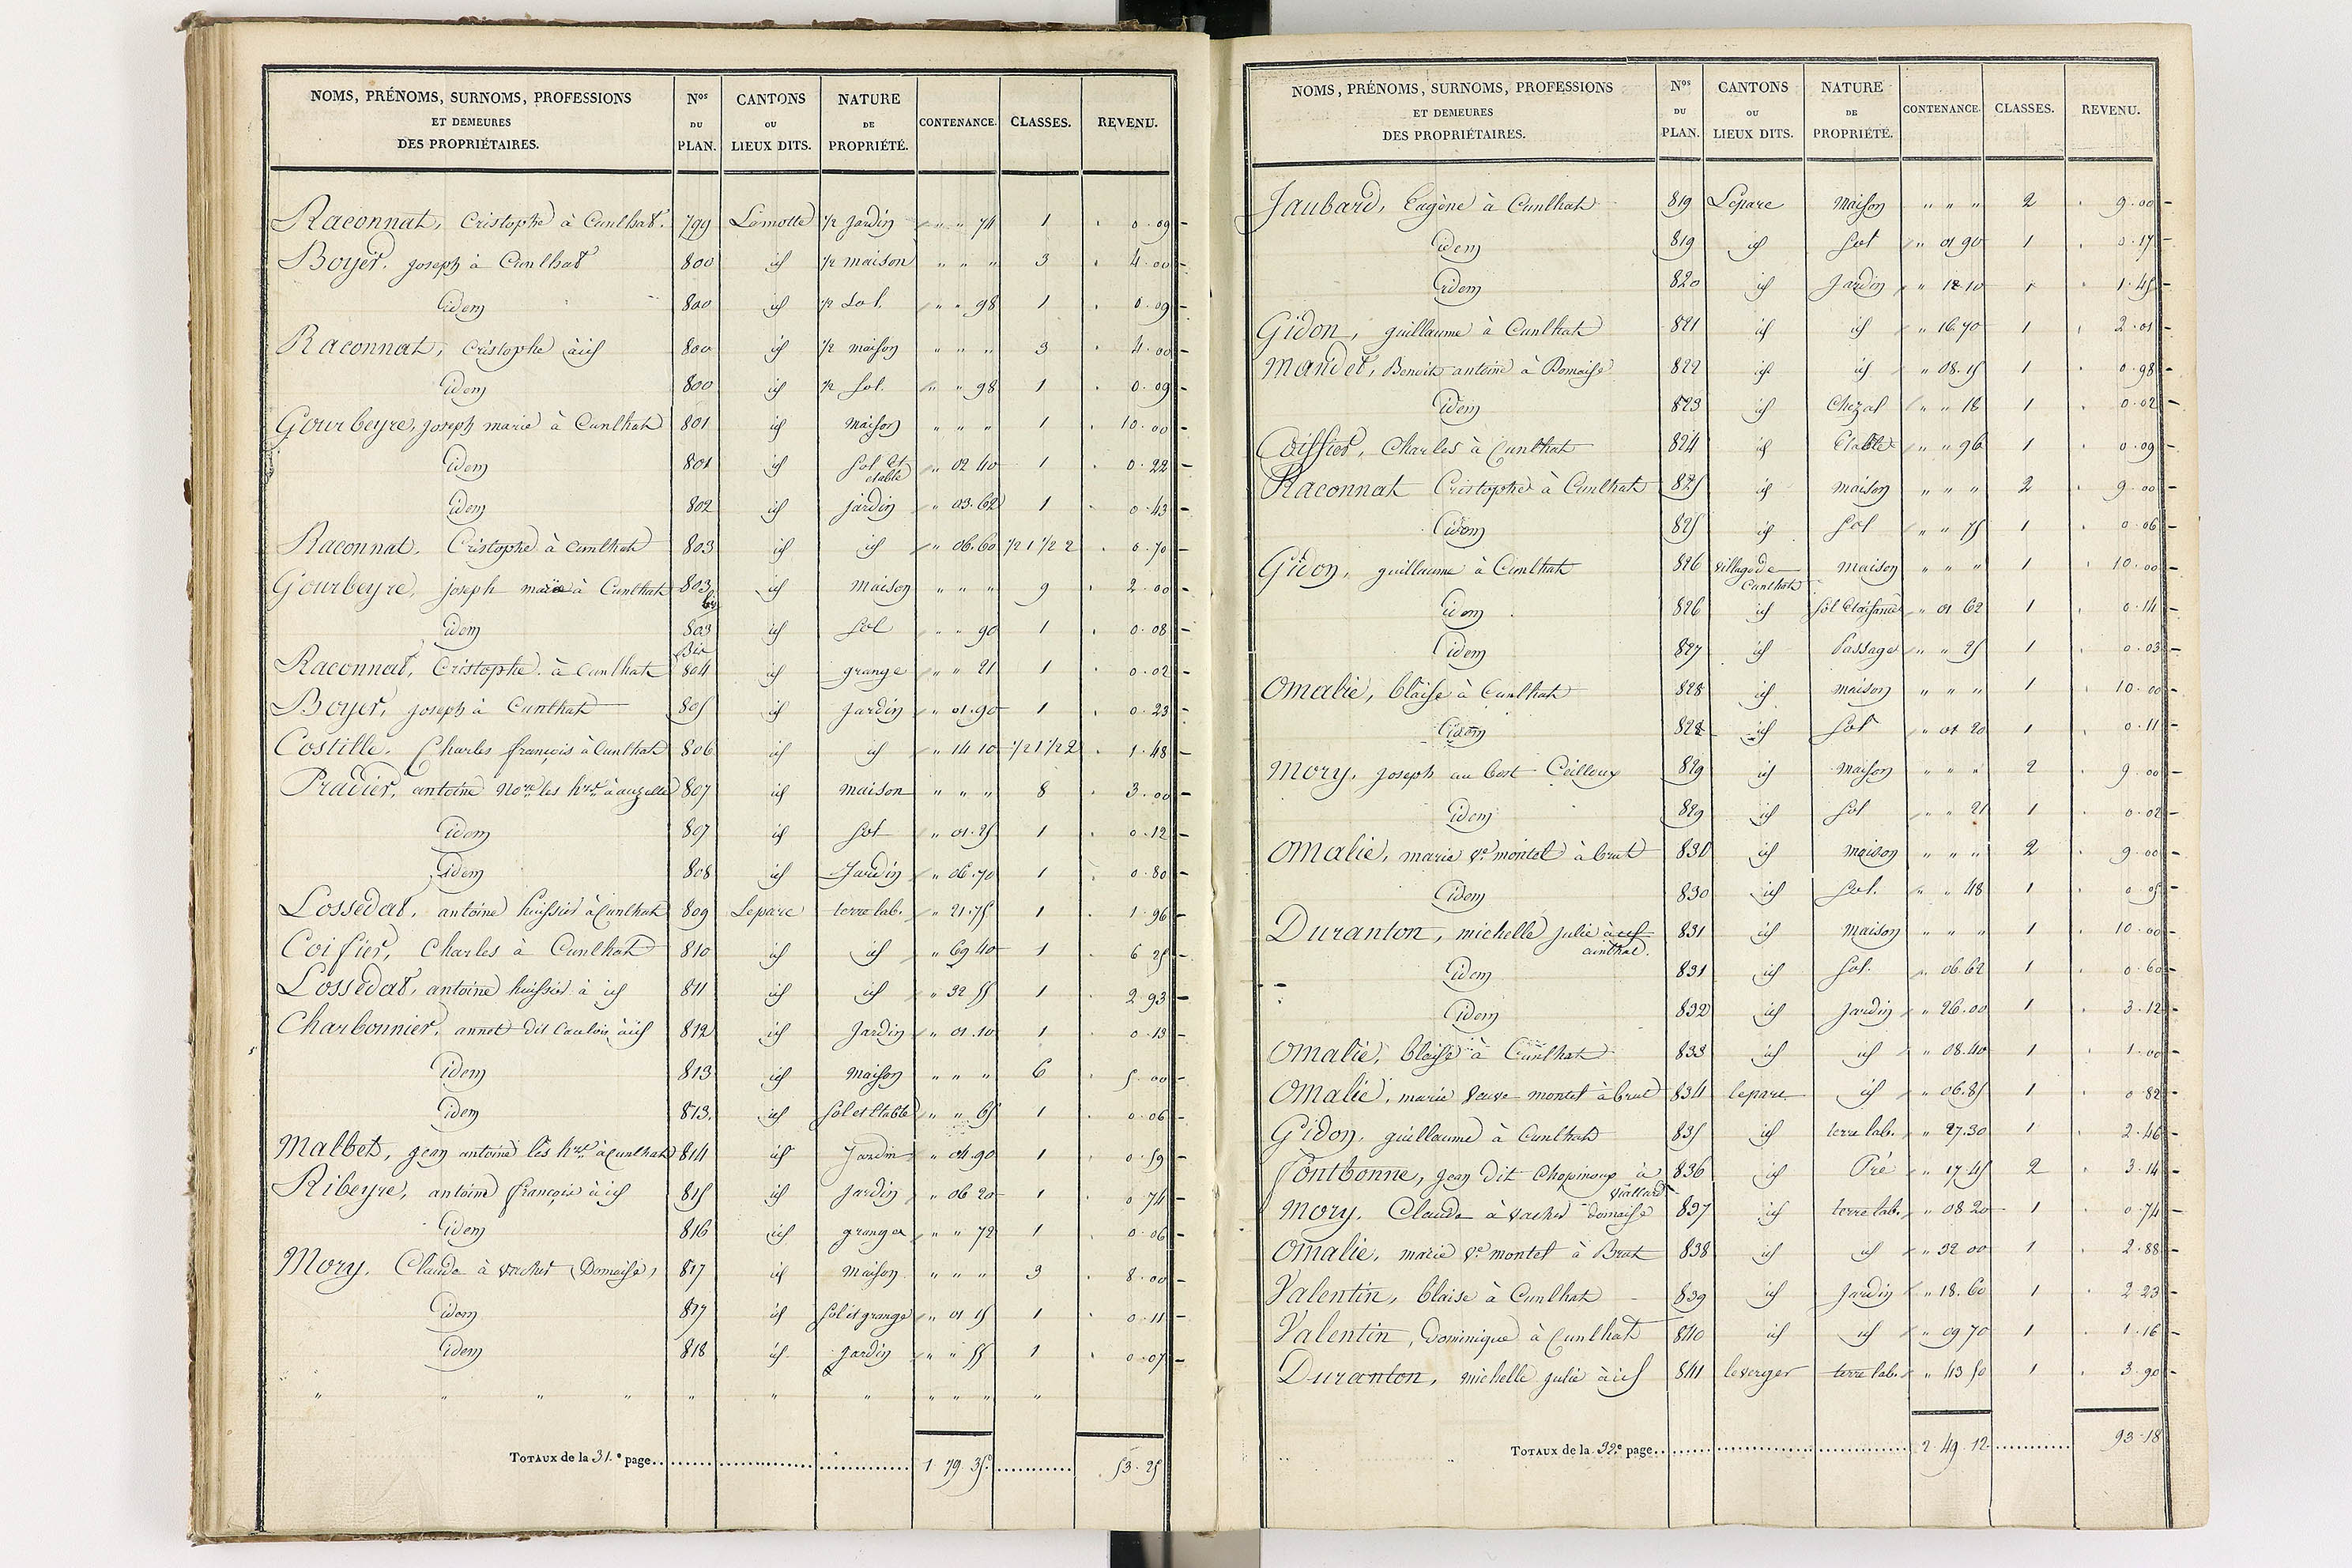 NOMS, PRÉNOMS, SURNOMS, PROFESSIONS ET DEMEURES DES PROPRIÉTAIRES. Nos DU PLAN. CANTONS OU LIEUX DITS. NATURE DE PROPRIÉTÉ. CONTENANCE. CLASSES. REVENU.
Raconnat, Cristophe à Cunlhat. 799 Lamotte 1/2 Jardin " " 74 1 0.09
Boyer, joseph à Cunlhat 800 id 1/2 maison " " " 3 4.00
Idem 800 id 1/2 Sol. " " 98 1 0.09
Raconnat, Cristophe à id 800 id 1/2 maison " " " 3 4.00
Idem 800 id 1/2 Sol. " " 98 1 0.09
Gourbeyre, joseph marie à Cunlhat 801 id maison " " " 1 10.00
Idem 801 id Sol et etable " 02 40 1 0.22
Idem 802 id jardin " 03.62 1 0.43
Raconnat, Cristophe à Cunlhat 803 id id " 06.60 1/2 1 1/2 2 0.70
Gourbeyre, joseph marie à Cunlhat 803 bis id maison " " " 9 2.00
Idem 803 Bis id Sol " " 90 1 0.08
Raconnat, Cristophe à Cunlhat 804 id grange " " 21 1 0.02
Boyer, joseph à Cunlhat 805 id Jardin " 01.90 1 0.23
Costille, Charles françois à Cunlhat 806 id id " 14 10 1/2 1 1/2 2 1.48
Pradier, antoine Nore les hrs à auzelle 807 id maison " " " 8 3.00
Idem 807 id Sol " 01.25 1 0.12
Idem 808 id Jardin " 06.70 1 0.80
Lossedat, antoine huissier à Cunlhat 809 Leparc terre lab. " 21.75 1 1.96
Coifier, Charles à Cunlhat 810 id id " 69 40 1 6 25
Lossedat, antoine huissier à id 811 id id " 32 55 1 2 93
Charbonnier, annet dit à id 812 id Jardin " 01.10 1 0.13
Idem 813 id Maison " " " 6 5.00
Idem 813. id Sol et Etable " " 65 1 0.06
Malbet, jean antoine les hrs à Cunlhat 814 id Jardin " 04.90 1 0.59
Ribeyre, antoine françois à id 815 id Jardin " 06 20 1 0 74
Idem 816 id grange " " 72 1 0.06
Mory, Claude à vacher (Domaise) 817 id Maison " " " 3 8.00
Idem 817 id Sol et grange " 01 15 1 0.11
Idem 818 id Jardin " " 55 1 0.07
" " " " " " " " " " "
TOTAUX de la 31.e page 1 79 35 53.25
NOMS, PRÉNOMS, SURNOMS, PROFESSIONS ET DEMEURES DES PROPRIÉTAIRES. Nos DU PLAN. CANTONS OU LIEUX DITS. NATURE DE PROPRIÉTÉ. CONTENANCE. CLASSES. REVENU.
Jaubard, Eugène à Cunlhat 819 Leparc Maison " " " 2 9.00
Idem 819 id Sol " 01 90 1 0.17
Idem 820 id Jardin " 12 10 1 1.45
Gidon, guillaume à Cunlhat 821 id id " 16.70 1 2.01
Mandet, Benoit antoine à Domaise 822 id id " 08.15 1 0.98
Idem 823 id Chezal " " 18 1 0.02
Coiffier, Charles à Cunlhat 824 id Etable " " 96 1 0.09
Raconnat Cristophe à Cunlhat 825 id maison " " " 2 9.00
Idem 825 id Sol " " 75 1 0.06
Gidon, guillaume à Cunlhat 826 village de Cunlhat maison " " " 1 10.00
Idem 826 id Sol " 01 62 1 0.14
Idem 827 id Passage " " 25 1 0.03
Omalie, blaise à Cunlhat 828 id maison " " " 1 10.00
Idem 828 id Sol " 01 20 1 0.11
Mory, joseph au bost Ceilloux 829 id maison " " " 2 9.00
Idem 829 id Sol " " 21 1 0.02
Omalie, marie ve montel à brut 830 id maison " " " 2 9.00
Idem 830 id Sol. " " 48 1 0 05
Duranton, michelle julie à id cunlhat. 831 id Maison " " " 1 10.00
Idem 831 id Sol. " 06.62 1 0.60
Idem 832 id Jardin " 26.00 1 3.12
Omalie, blaise à Cunlhat 833 id id " 08.40 1 1.00
Omalie, marie veuve montel à brut 834 leparc id " 06.85 1 0 82
Gidon, guillaume à Cunlhat 835 id terre lab. " 27.30 1 2.46
Fontbonne, jean dit Chopinoux à viallard 836 id Pré " 17.45 2 3.14
Mory, Claude à vacher domaise 837 id terre lab. " 08 20 1 0.74
Omalie, marie ve montel à Brut 838 id id " 32 00 1 2.88
Valentin, blaise à Cunlhat 839 id Jardin " 18.60 1 2 23
Valentin, Dominique à Cunlhat 840 id id " 09 70 1 1.16
Duranton, michelle julie à id 841 leverger terre lab. " 43 50 1 3.90
TOTAUX de la 32.e page 2 49 12 93.18